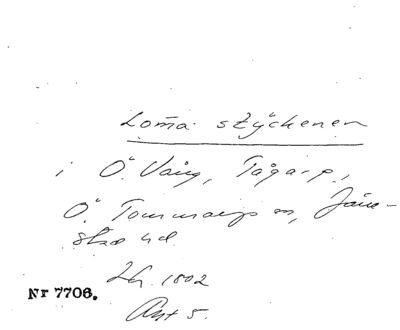 Loma styckenen
i Ö. Vång, Tågarp,
Ö. Tommarps sn, Järre-
stad hd.
Lh. 1802
Akt 5.
Nr 7706.